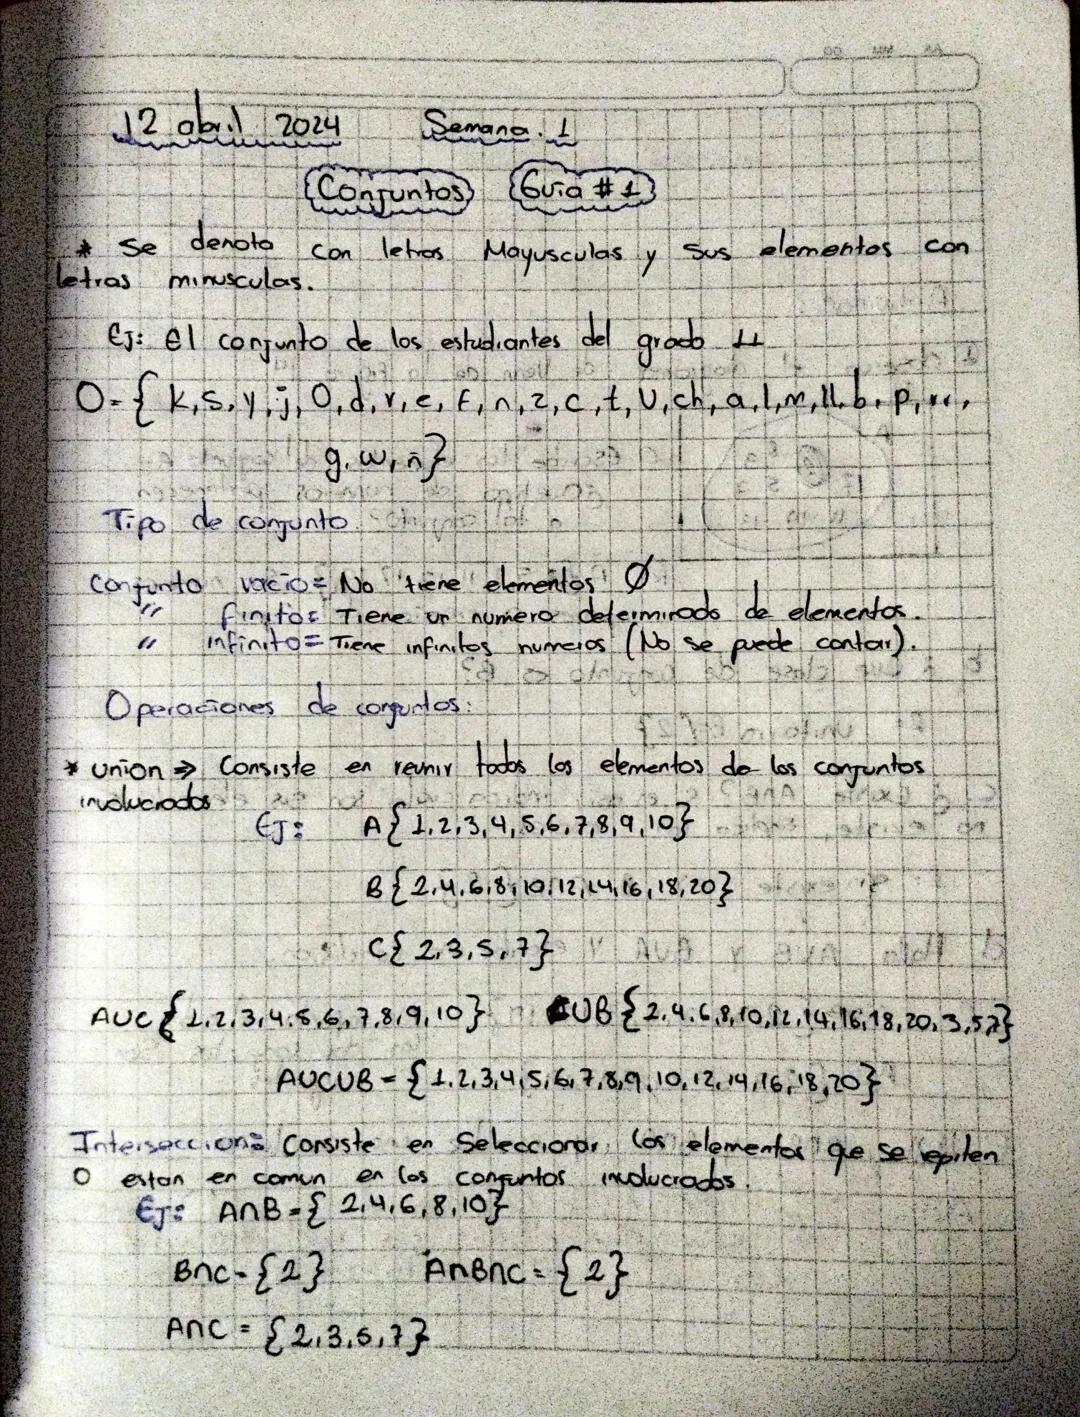 12 abril 2024 Semana. 1
Conjuntos Guia #1
* Se denota con letras Mayusculas y sus elementos con
letras minusculas.
Ej: El conjunto de los estudiantes del grado 11
O={ k,s,y,j,O,d,v,e,f,n,z,c,t,U,ch,a,l,m,ll,b,p,
g,w,ñ}
Tipo de conjunto
Conjunto vacio= No tiene elementos Ø
" finito= Tiene un numero determinado de elementos.
" infinito= Tiene infinitos numeros (No se puede contar).
Operaciones de conjuntos:
* union ⇒ Consiste en reunir todos los elementos de los conjuntos
involucrados
Ej: A{ 1,2,3,4,5,6,7,8,9,10}
B{ 2,4,6,8,10,12,14,16,18,20}
C{ 2,3,5,7}
AUC{ 1,2,3,4,5,6,7,8,9,10} CUB{2,4,6,8,10,12,14,16,18,20,3,5,7}
AUCUB={ 1,2,3,4,5,6,7,8,9,10,12,14,16,18,20}
Interseccion= Consiste en Seleccionar los elementos que se repiten
O estan en comun en los conjuntos involucrados.
Ej: A∩B={ 2,4,6,8,10}
B∩C={2} A∩B∩C={2}
A∩C={2,3,5,7}